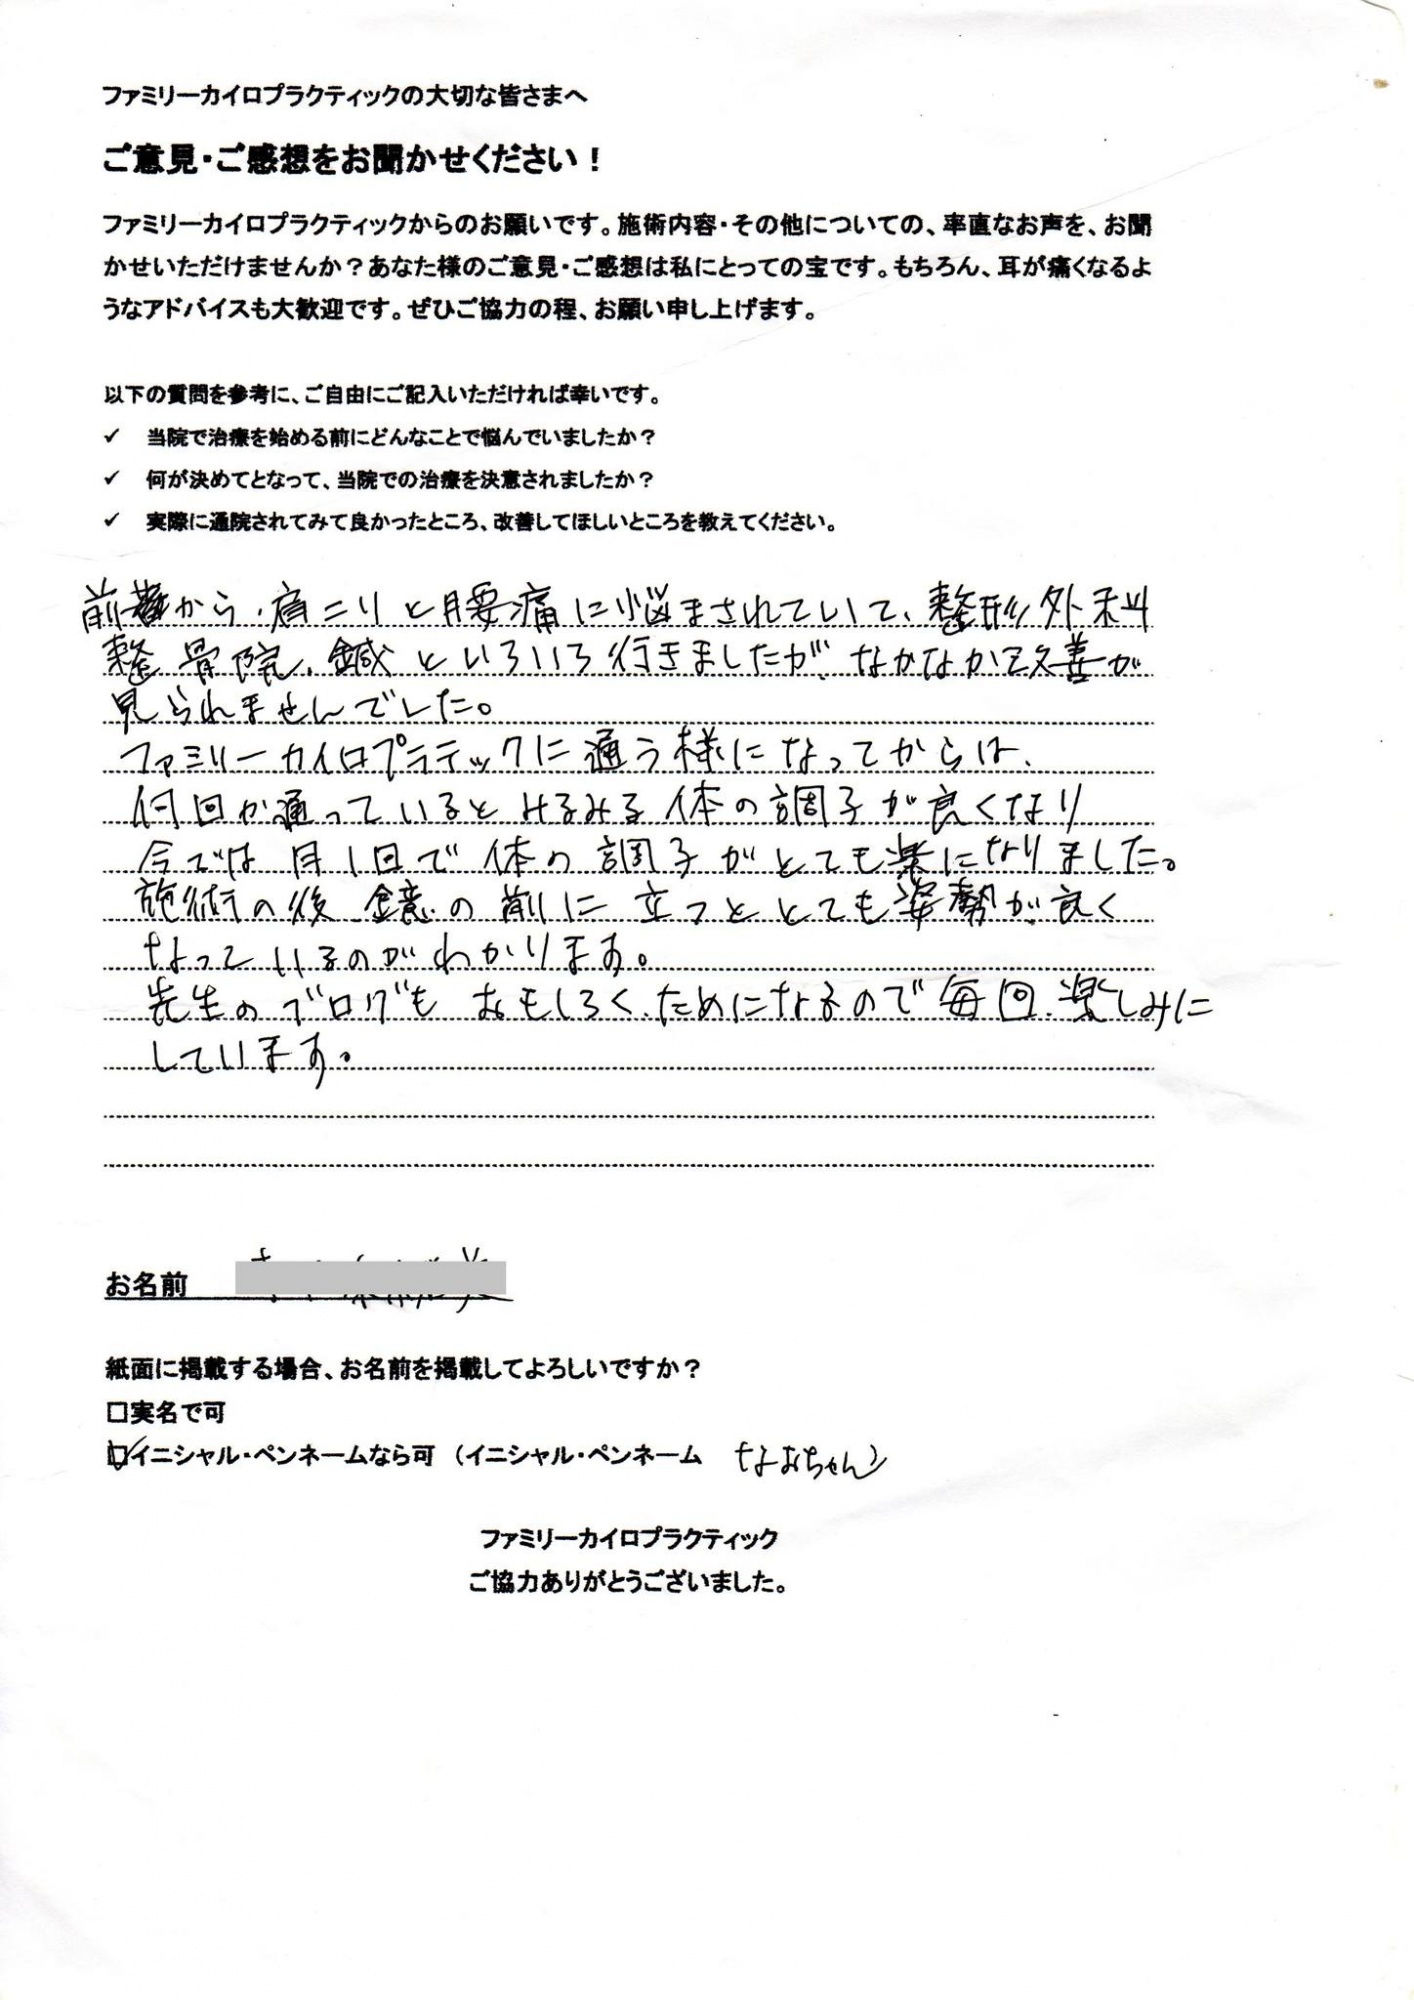 ファミリーカイロプラクティックの大切な皆さまへ
ご意見・ご感想をお聞かせください！
ファミリーカイロプラクティックからのお願いです。施術内容・その他についての、率直なお声を、お聞
かせいただけませんか？あなた様のご意見・ご感想は私にとっての宝です。もちろん、耳が痛くなるよ
うなアドバイスも大歓迎です。ぜひご協力の程、お願い申し上げます。
以下の質問を参考に、ご自由にご記入いただければ幸いです。
✓ 当院で治療を始める前にどんなことで悩んでいましたか？
✓ 何が決めてとなって、当院での治療を決意されましたか？
✓ 実際に通院されてみて良かったところ、改善してほしいところを教えてください。
前から、肩こりと腰痛に悩まされていて、整形外科
整骨院、鍼といろいろ行きましたが、なかなか改善が
見られませんでした。
ファミリーカイロプラテックに通う様になってからは、
何回か通っているとみるみる体の調子が良くなり
今では月1回で体の調子がとても楽になりました。
施術の後、鏡の前に立つととても姿勢が良く
なっているのがわかります。
先生のブログもおもしろく、ためになるので毎回、楽しみに
しています。
お名前
紙面に掲載する場合、お名前を掲載してよろしいですか？
□実名で可
☑イニシャル・ペンネームなら可 （イニシャル・ペンネーム なおちゃん）
ファミリーカイロプラクティック
ご協力ありがとうございました。